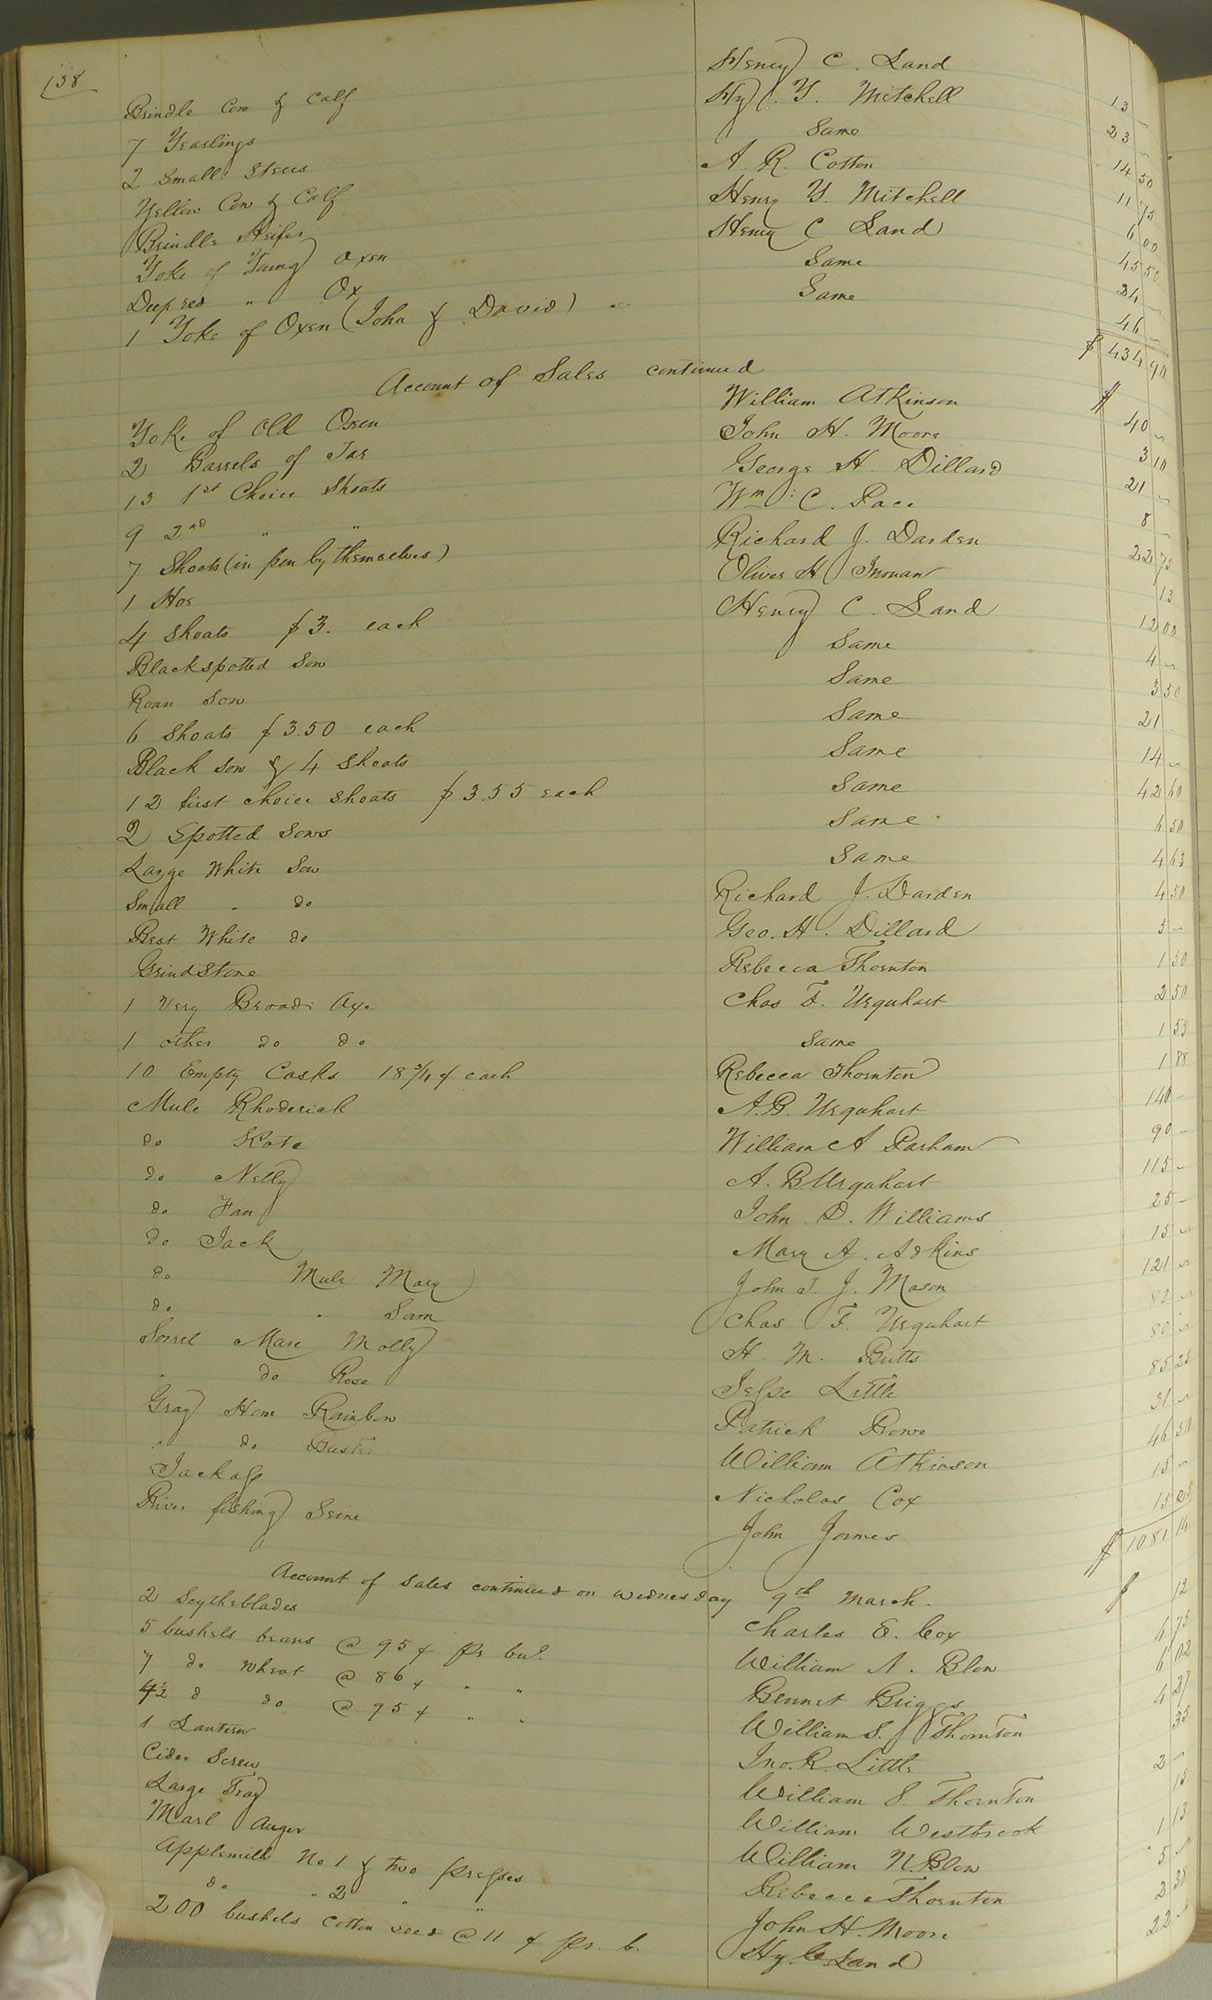 138
Brindle Cow & Calf Henry C. Land 13 "
7 Yearlings Hy. Y. Mitchell 23 "
2 Small Steers Same 14 50
Yellow Cow & Calf A. R. Cotton 11 75
Brindle Heifer Henry Y. Mitchell 6 00
Yoke of Young Oxen Henry C Land 45 50
Deep red " Ox Same 24 "
1 Yoke of Oxen (John & David) Same 46 "
$ 434 90
Account of Sales continued
Yoke of Old Oxen William Atkinson $ 40 "
2 Barrels of Tar John H. Moore 3 10
13 1st Choice Shoats George H. Dillard 21 "
9 2nd " " Wm. C. Pace 8
7 Shoats (in pen by themselves) Richard J. Darden 22 75
1 Hoe Oliver H Inman 13
4 Shoats $3. each Henry C. Land 12 00
Black spotted Sow Same 4 "
Roan Sow Same 3 50
6 Shoats $3.50 each Same 21
Black Sow & 4 Shoats Same 14 "
12 first choice Shoats $3.55 each Same 42 60
2 Spotted Sows Same 6 50
Large White Sow Same 4 63
Small " do Richard J. Darden 4 50
Best White do Geo. H. Dillard 5 "
Grind Stone Rebecca Thornton 1 50
1 Very Broad Axe Chas F. Urquhart 2 50
1 other do do Same 1 55
10 Empty Casks 18 3/4 ¢ each Rebecca Thornton 1 88
Mule Rhoderick A. B. Urquhart 140 "
do Kate William A Parham 90 "
do Nelly A. B. Urquhart 115 "
do Fan John D. Williams 25 "
do Jack Mary A. Adkins 15 "
do Mule Mary John T. J. Mason 121 "
do " Sam Chas F. Urquhart
Sorrel Mare Molly H. M. Butts 80 "
" do Rose Jesse Little 85 25
Gray Horse Rainbow Patrick Browne 31 "
" do Buster William Atkinson 46 50
Jackass Nicholas Cox 15 "
River fishing Seine John James 15 25
$ 1081 14
Account of Sales continued on Wednesday 9th March.
2 Scytheblades Charles E. Cox $ 12
5 bushels beans @ 95 ¢ pr bu. William N. Blow 4 75
7 do Wheat @ 86 ¢ " " Bennet Briggs 6 02
4½ d do @ 95 ¢ " " William S. Thornton 4 27
1 Lantern Jno. R. Little 35
Cider Screw William S. Thornton 2 "
Large Tray William Westbrook 13
Marl Auger William N. Blow 1 13
Applemill No 1 & two presses Rebecca Thornton 5 "
do " 2 " " John H. Moore 2 30
200 bushels Cotton seed @ 11 ¢ pr. b. Hy. C. Land 22 "